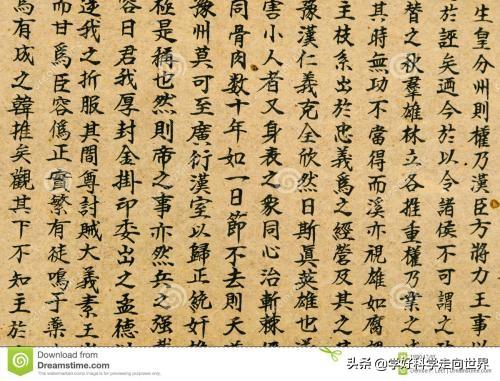 生皇分州則權乃漢臣方將力王事以
於誣矣迺今於以令諸侯不可謂之
替之秋羣雄林立各推重權乃業之
其時無功不當得而溪亦視雄如腐
主枝系出於忠義爲之經營及其之
豫漢仁義充全欣然日斯眞英雄也
害小人者又身表之衆同心治斬棘
同骨肉数十年如一日節不去則天
豫州莫可至廣衍漢室以歸正統奸
極是稱也然則帝之事亦然兵之强
容日君我厚封金掛印委出之孟德
逆我之折服其間尊討賊大義素王
而甘爲臣容僞正實繁有徒鳴于藥
馬有成之韓推矣觀其下不知主於
Download from
Dreamstime.com
This watermarked comp image is for previewing purposes only.
头条 @学好科学走向世界